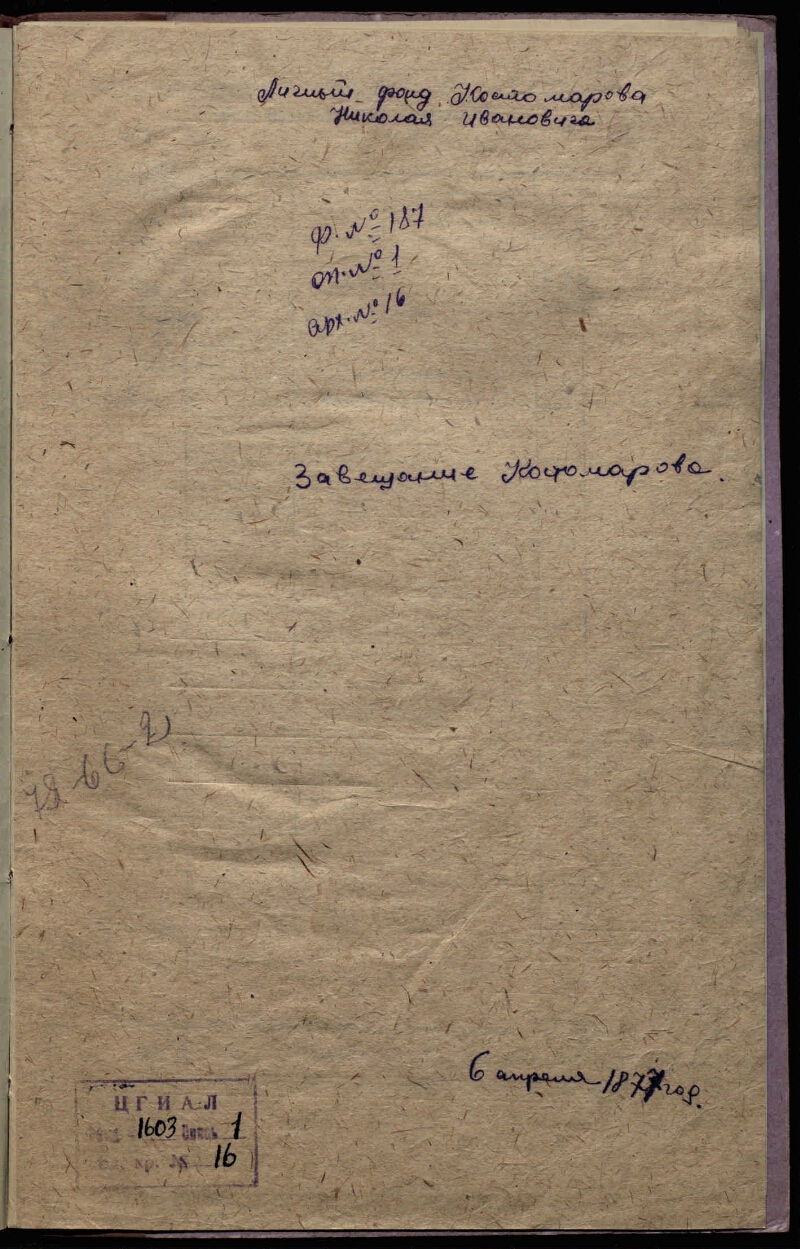 Личный фонд Костомарова
Николая Ивановича
ф. № 187
оп. № 1
арх. № 16
Завещание Костомарова.
6 апреля 1877 год.
ЦГИАЛ
Фонд 1603 Опись 1
Ед. хр. № 16